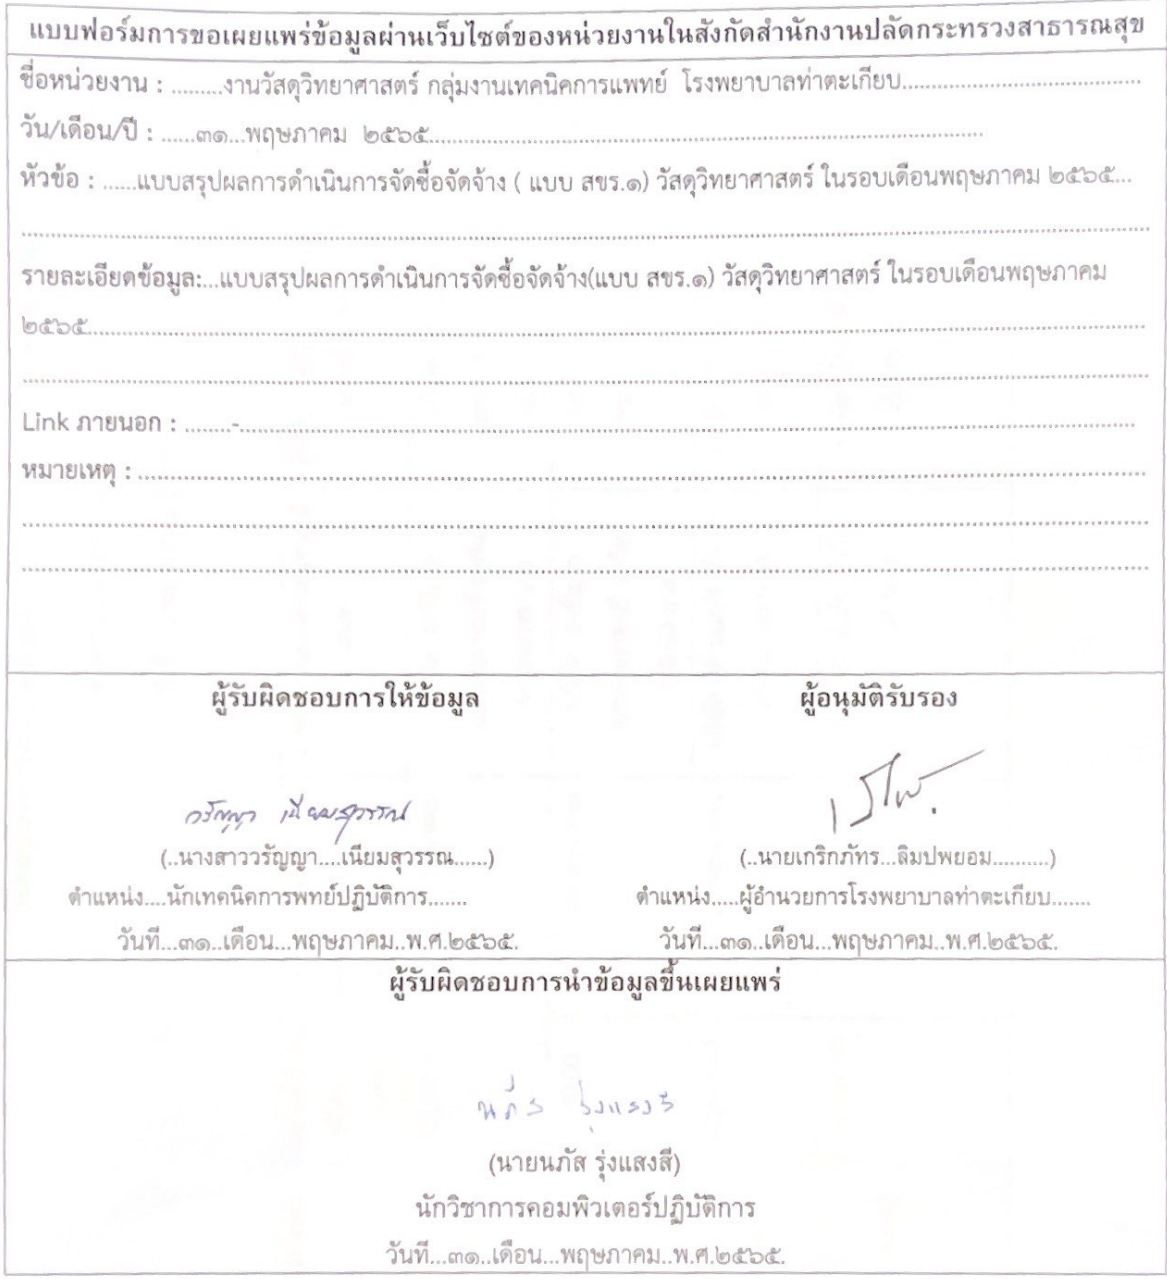 แบบฟอร์มการขอเผยแพร่ข้อมูลผ่านเว็บไซต์ของหน่วยงานในสังกัดสำนักงานปลัดกระทรวงสาธารณสุข
ชื่อหน่วยงาน : .........งานวัสดุวิทยาศาสตร์ กลุ่มงานเทคนิคการแพทย์ โรงพยาบาลท่าตะเกียบ..........................................
วัน/เดือน/ปี : ......๓๑...พฤษภาคม ๒๕๖๕.....................................................................................
หัวข้อ : ......แบบสรุปผลการดำเนินการจัดซื้อจัดจ้าง ( แบบ สขร.๑) วัสดุวิทยาศาสตร์ ในรอบเดือนพฤษภาคม ๒๕๖๕...
รายละเอียดข้อมูล:...แบบสรุปผลการดำเนินการจัดซื้อจัดจ้าง(แบบ สขร.๑) วัสดุวิทยาศาสตร์ ในรอบเดือนพฤษภาคม
๒๕๖๕.....................................................................................
Link ภายนอก : ........-.....................................................................................
หมายเหตุ : .....................................................................................
ผู้รับผิดชอบการให้ข้อมูล
ผู้อนุมัติรับรอง
วรัญญา เนียมสุวรรณ
(..นางสาววรัญญา....เนียมสุวรรณ......)
(..นายเกริกภัทร...ลิมปพยอม..........)
ตำแหน่ง....นักเทคนิคการพทย์ปฏิบัติการ.......
ตำแหน่ง.....ผู้อำนวยการโรงพยาบาลท่าตะเกียบ.......
วันที่...๓๑..เดือน...พฤษภาคม..พ.ศ.๒๕๖๕.
วันที่...๓๑..เดือน...พฤษภาคม..พ.ศ.๒๕๖๕.
ผู้รับผิดชอบการนำข้อมูลขึ้นเผยแพร่
นภัส รุ่งแสงสี
(นายนภัส รุ่งแสงสี)
นักวิชาการคอมพิวเตอร์ปฏิบัติการ
วันที่...๓๑..เดือน...พฤษภาคม..พ.ศ.๒๕๖๕.